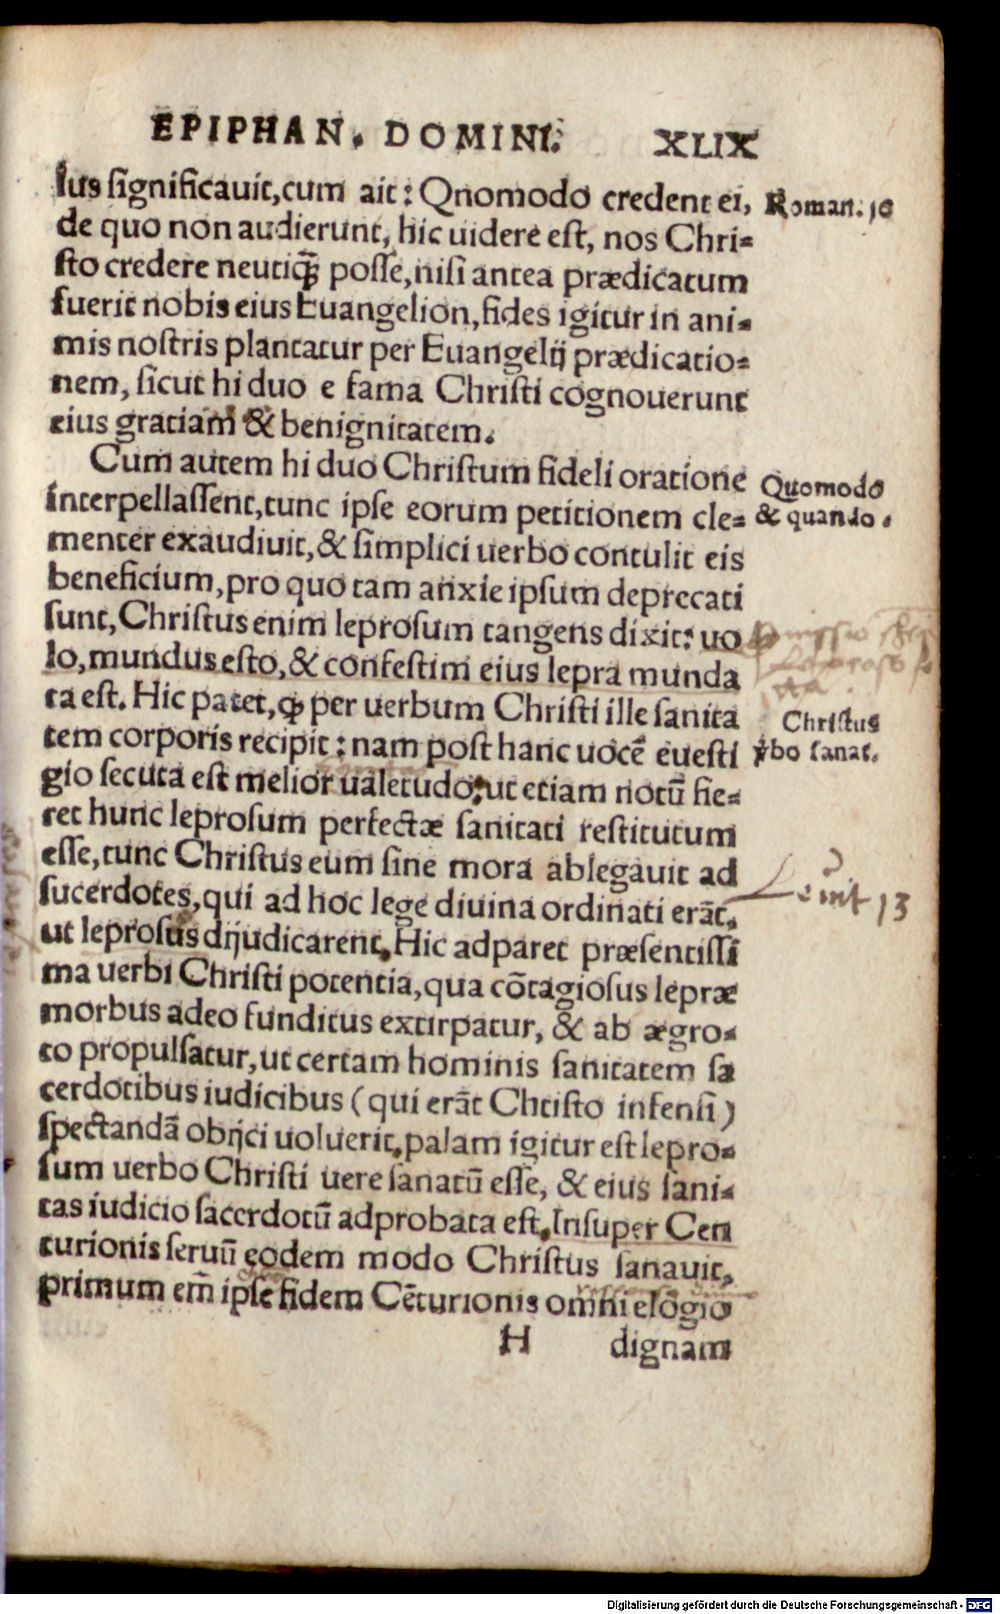 EPIPHAN. DOMINI. XLIX
lus significauit, cum ait: Qnomodo credent ei, Roman. 10
de quo non audierunt, hic uidere est, nos Chri=
sto credere neutiqȝ posse, nisi antea prædicatum
fuerit nobis eius Euangelion, fides igitur in ani=
mis nostris plantatur per Euangelij prædicatio=
nem, sicut hi duo e fama Christi cognouerunt
eius gratiam & benignitatem.
Cum autem hi duo Christum fideli oratione Quomodo
interpellassent, tunc ipse eorum petitionem cle= & quando.
menter exaudiuit, & simplici uerbo contulit eis
beneficium, pro quo tam anxie ipsum deprecati
sunt, Christus enim leprosum tangens dixit: uo
lo, mundus esto, & confestim eius lepra munda
ta est. Hic patet, ꝙ per uerbum Christi ille sanita Christus
tem corporis recipit: nam post hanc uocē euesti ƿbo sanat.
gio secuta est melior ualetudo: ut etiam notū fie=
ret hunc leprosum perfectæ sanitati restitutum
esse, tunc Christus eum sine mora ablegauit ad
sucerdotes, qui ad hoc lege diuina ordinati erāt, Leuit 13
ut leprosus dijudicarent. Hic adparet præsentissi
ma uerbi Christi potentia, qua cōtagiosus lepræ
morbus adeo funditus extirpatur, & ab ægro=
to propulsatur, ut certam hominis sanitatem sa
cerdotibus iudicibus (qui erāt Chtisto infensi)
spectandā obijci uoluerit, palam igitur est lepro=
sum uerbo Christi uere sanatū esse, & eius sani=
tas iudicio sacerdotū adprobata est. Insuper Cen
turionis seruū eodem modo Christus sanauit,
primum em̄ ipse fidem Cēturionis omni elogio
H dignam
Digitalisierung gefördert durch die Deutsche Forschungsgemeinschaft - DFG